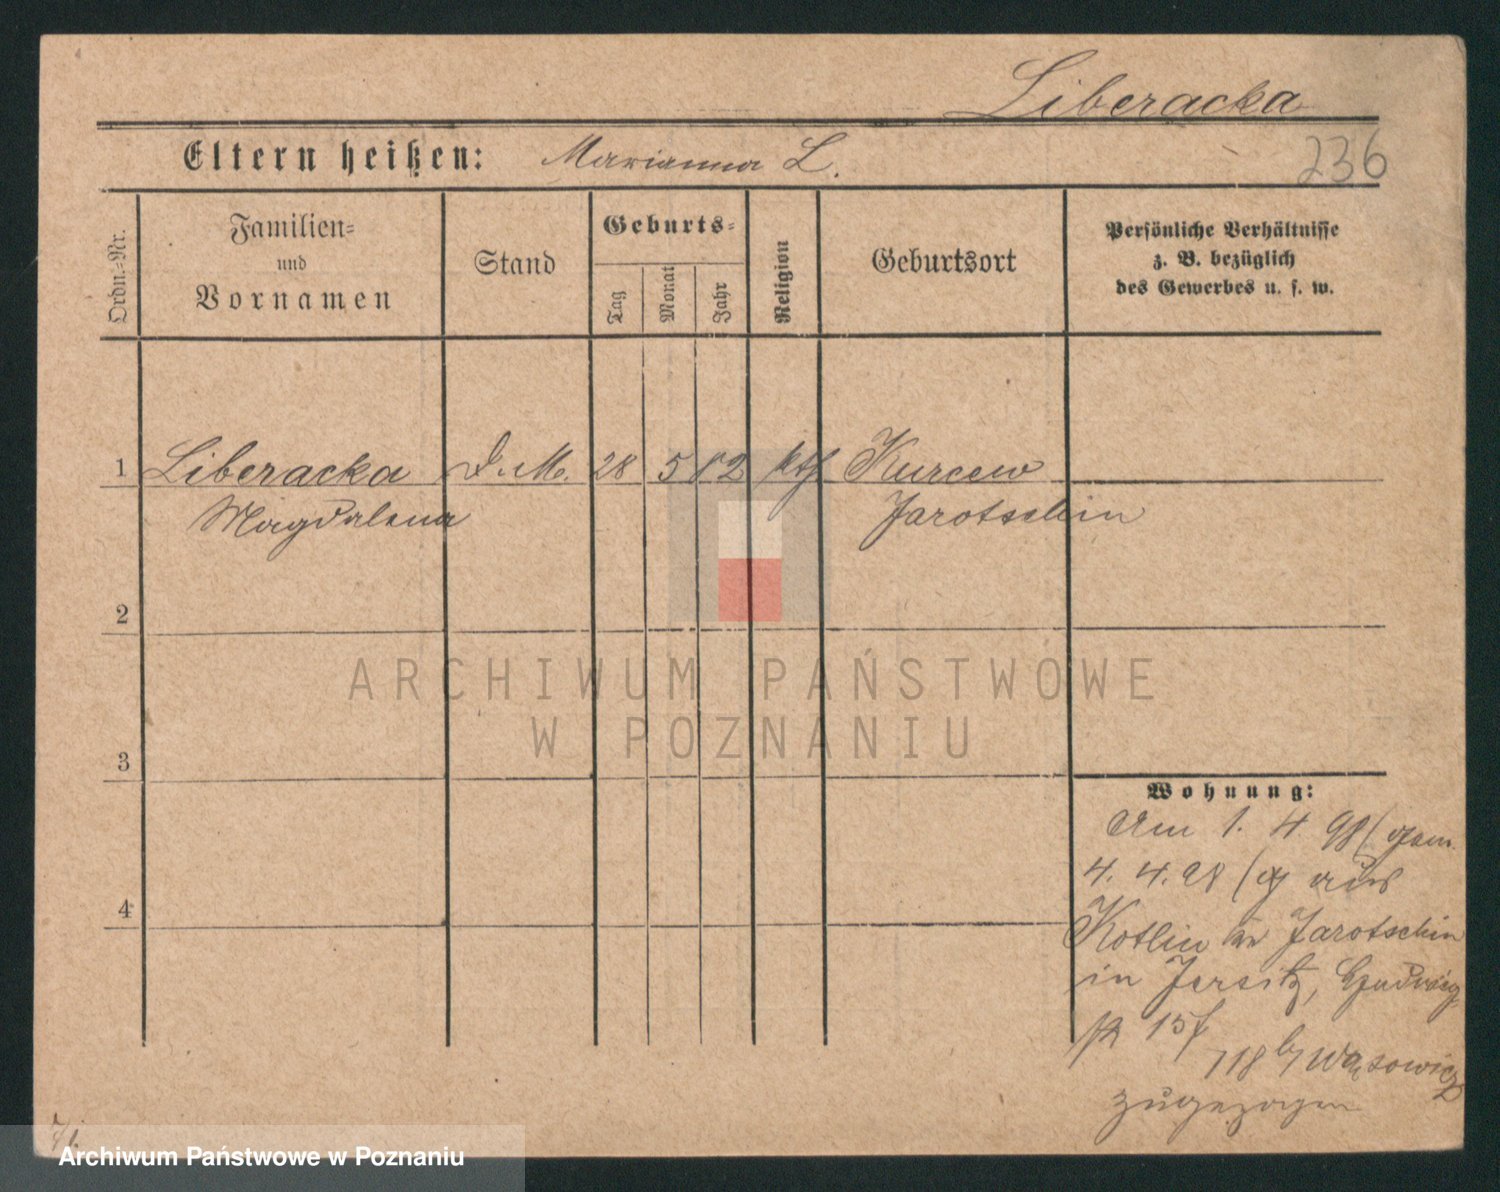 Liberacka
236
Eltern heißen: Marianna L.
Ordn.-Nr.
Familien- und Vornamen
Stand
Geburts-
Tag
Monat
Jahr
Religion
Geburtsort
Persönliche Verhältnisse
z. B. bezüglich
des Gewerbes u. s. w.
1 Liberacka D. M. 28 5 82 kth Kurcew
Magdalena Jarotschin
2
3
4
ARCHIWUM PAŃSTWOWE
W POZNANIU
Wohnung:
Am 1. 4 98 (gem.
4. 4. 98 aus
Kotlin Jarotschin
in Jersitz,
15
118 Wąsowicz
zugezogen
Archiwum Państwowe w Poznaniu